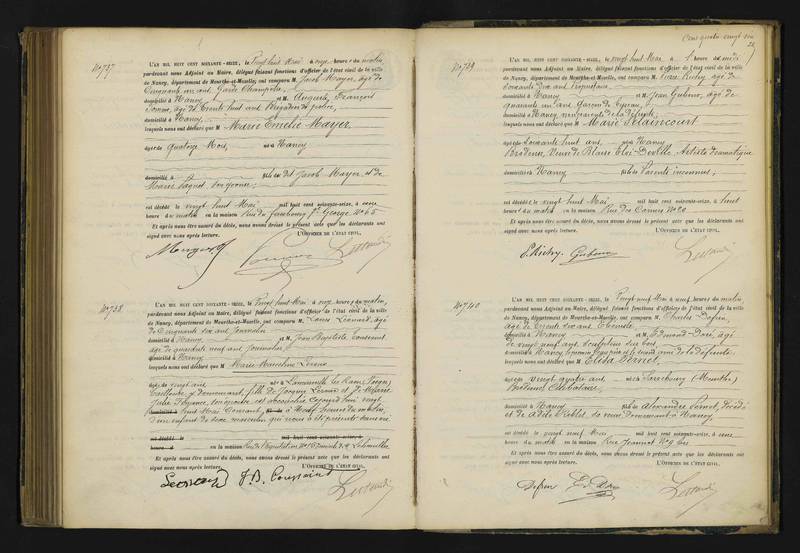 No 737
L'AN MIL HUIT CENT SOIXANTE-SEIZE, le Vingt huit Mai à onze heures du matin
pardevant nous Adjoint au Maire, délégué faisant fonctions d'officier de l'état civil de la ville
de Nancy, département de Meurthe-et-Moselle, ont comparu M. Jacob Mayer, âgé de
Cinquante un ans Garde Champêtre
domicilié à Nancy et M. Auguste François
âgé de trente huit ans Brigadier de police,
domicilié à Nancy
lesquels nous ont déclaré que Marie Emélie Mayer
âgée de quatorze Mois, née à Nancy
domiciliée à fille de dit Jacob Mayer et de
Marie
est décédée le vingt huit Mai mil huit cent soixante-seize, à une
heure du matin en la maison Rue du faubourg St George No 65
Et après nous être assuré du décès, nous avons dressé le présent acte que les déclarants ont
signé avec nous après lecture. L'OFFICIER DE L'ÉTAT CIVIL,
No 738
L'AN MIL HUIT CENT SOIXANTE-SEIZE, le Vingt huit Mai à onze heures du matin,
pardevant nous Adjoint au Maire, délégué faisant fonctions d'officier de l'état civil de la ville
de Nancy, département de Meurthe-et-Moselle, ont comparu M. Louis Léonard, âgé
de Cinquante six ans Journalier
domicilié à Nancy et M. Jean Baptiste Toussaint
âgé de quarante neuf ans, journalier,
domicilié à Nancy
lesquels nous ont déclaré que Marie
âgée de vingt ans née à
Tailleuse y demeurant, fille de
Julie est accouchée cejourd'hui vingt
huit Mai Courant, à Neuf heures du matin,
d'un enfant de sexe masculin qui nous a été présenté sans vie
est décédé le mil huit cent soixante-seize, à
heure d en la maison
Et après nous être assuré du décès, nous avons dressé le présent acte que les déclarants ont
signé avec nous après lecture. L'OFFICIER DE L'ÉTAT CIVIL,
J. B. Toussaint
Cent quatre vingt six
No 739
L'AN MIL HUIT CENT SOIXANTE-SEIZE, le vingt huit Mai à 1 heure du midi
pardevant nous Adjoint au Maire, délégué faisant fonctions d'officier de l'état civil de la ville
de Nancy, département de Meurthe-et-Moselle, ont comparu M. Pierre Richy âgé de
soixante dix ans Propriétaire
domicilié à Nancy et M. Jean Gubinor, âgé de
quarante un ans Garçon de bureau,
domicilié à Nancy, non parents de la défunte
lesquels nous ont déclaré que Marie Élaincourt
âgée de soixante huit ans, née à Nancy
Brodeuse, Veuve de Blaise Eloi Deville, Artiste dramatique
domiciliée à Nancy fille de Parents inconnus;
est décédée le vingt huit Mai mil huit cent soixante-seize, à huit
heures du matin en la maison Rue des Carmes No 20
Et après nous être assuré du décès, nous avons dressé le présent acte que les déclarants ont
signé avec nous après lecture. L'OFFICIER DE L'ÉTAT CIVIL,
P. Richy
No 740
L'AN MIL HUIT CENT SOIXANTE-SEIZE, le Vingt neuf Mai à neuf heures du matin,
pardevant nous Adjoint au Maire, délégué faisant fonctions d'officier de l'état civil de la ville
de Nancy, département de Meurthe-et-Moselle, ont comparu M. Charles Defren,
âgé de trente six ans Ebéniste
domicilié à Nancy et M. Edmond Doré, âgé
de vingt neuf ans, sculpteur sur bois,
domicilié à Nancy, le premier beau père et le second ami de la défunte
lesquels nous ont déclaré que Elisa Pernet
âgée de vingt quatre ans née à Sarrebourg (Meurthe)
Célibataire,
domiciliée à Nancy fille de Alexandre Pernet, décédé
et de Adèle sa veuve demeurant à Nancy;
est décédée le vingt neuf Mai mil huit cent soixante-seize, à une
heure du matin en la maison Rue Jeannot No 9 bis
Et après nous être assuré du décès, nous avons dressé le présent acte que les déclarants ont
signé avec nous après lecture. L'OFFICIER DE L'ÉTAT CIVIL,
Defren